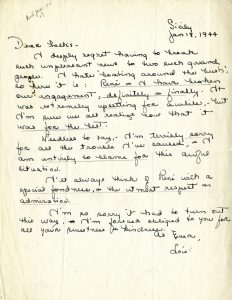 Sicily
Jan 18, 1944
Dear Folks -
I deeply regret having to break
such unpleasant news to two such grand
people. I hate beating around the bush,
so here it is: René & I have broken
our engagement - definitely & finally. It
was extremely upsetting for awhile, but
I'm sure we all realize now that it
was for the best.
Needless to say, I'm terribly sorry
for all the trouble I've caused, & I
am entirely to blame for this awful
situation.
I'll always think of René with a
special fondness, & the utmost respect and
admiration.
I'm so sorry it had to turn out
this way, & I'm forever obliged to you for
all your sweetness & kindness.
As Ever,
Lois